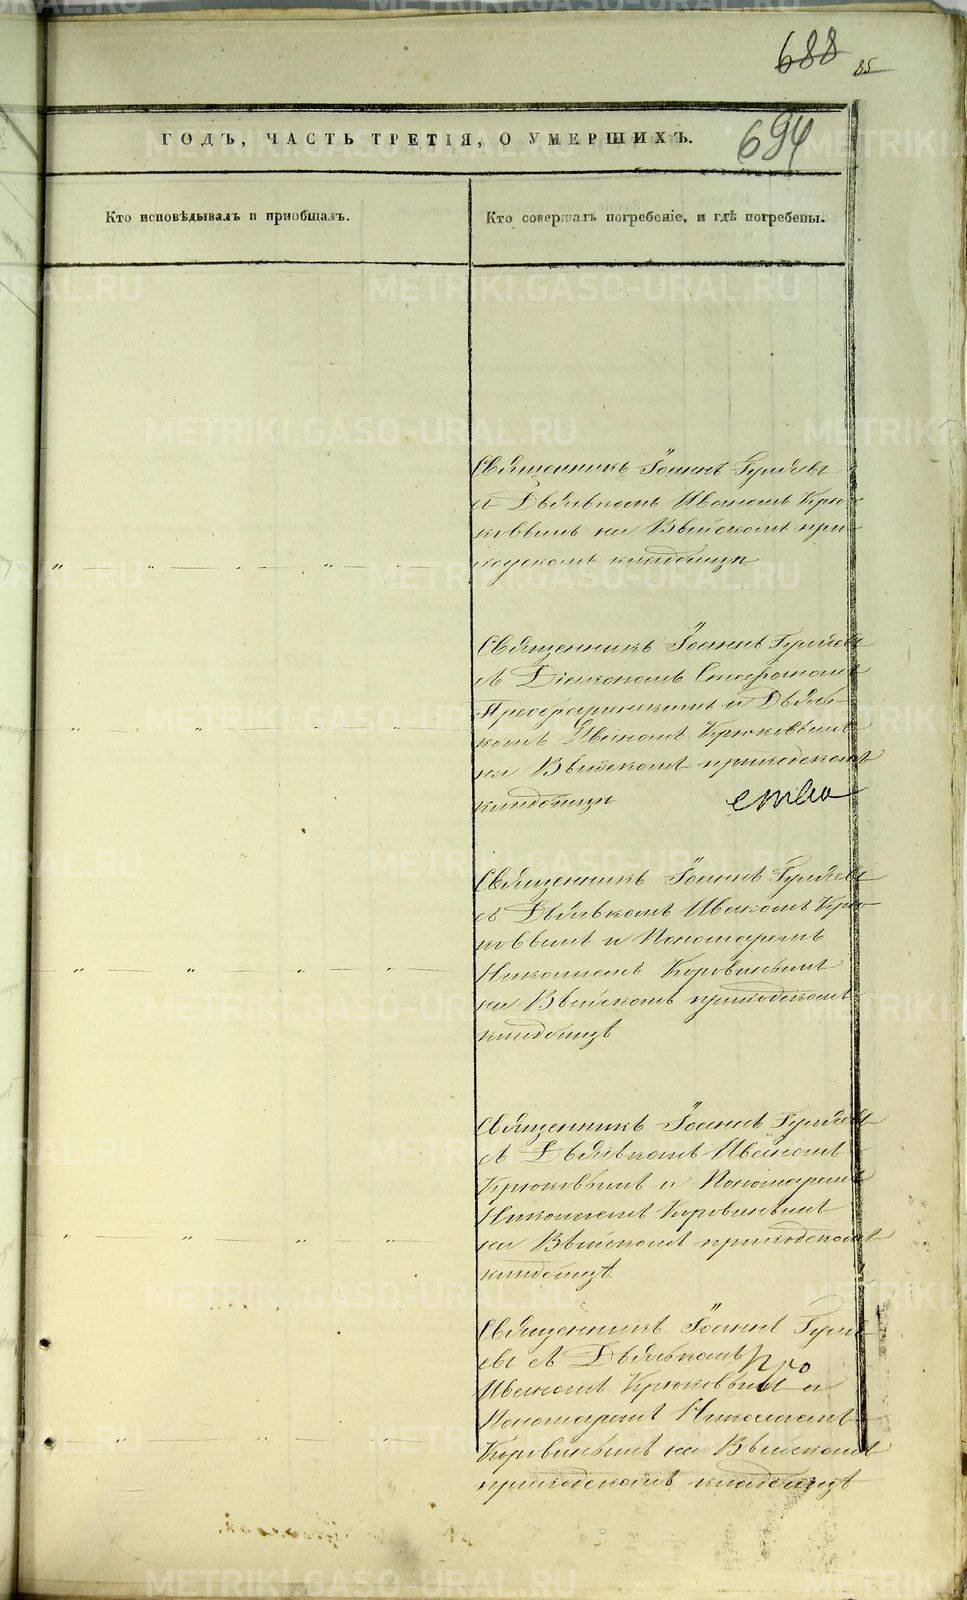 688 85
694
ГОДЪ, ЧАСТЬ ТРЕТІЯ, О УМЕРШИХЪ.
Кто исповѣдывалъ и пріобщалъ.
Кто совершалъ погребеніе, и гдѣ погребены.
Священникъ Іоаннъ Гуляевъ
съ Дьячкомъ Иваномъ Крю-
ковымъ на Выйскомъ при-
ходскомъ кладбищѣ
Священникъ Іоаннъ Гуляевъ
съ Діакономъ Стефаномъ
и Дьяч-
комъ Иваномъ Крюковымъ
на Выйскомъ приходскомъ
кладбищѣ
ства
Священникъ Іоаннъ Гуляевъ
съ Дьячкомъ Иваномъ Крю-
ковымъ и Пономаремъ
Николаемъ Коровинымъ
на Выйскомъ приходскомъ
кладбищѣ
Священникъ Іоаннъ Гуляевъ
съ Дьячкомъ Иваномъ
Крюковымъ и Пономаремъ
Николаемъ Коровинымъ
на Выйскомъ приходскомъ
кладбищѣ.
Священникъ Іоаннъ Гуля-
евъ съ Дьячкомъ
Иваномъ Крюковымъ и
Пономаремъ Николаемъ
Коровинымъ на Выйскомъ
приходскомъ кладбищѣ
METRIKI.GASO-URAL.RU